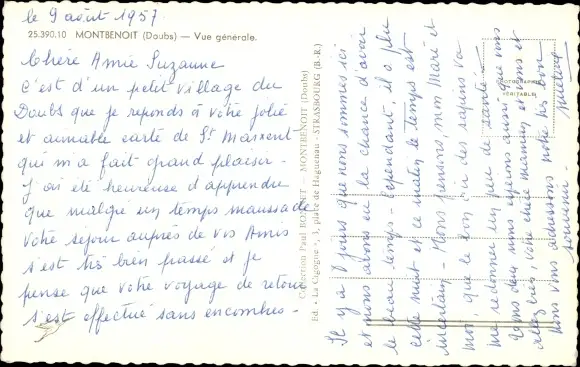 le 9 août 1957.
25.390.10 MONTBENOIT (Doubs) — Vue générale.
Chère Amie Suzanne
C'est d'un petit village du
Doubs que je reponds à votre jolie
et aimable carte de St Maixent
qui m'a fait grand plaisir.
J'ai été heureuse d'apprendre
que malgré un temps maussade
votre sejour auprès de vos Amis
s'est très bien passé et je
pense que votre voyage de retour
s'est effectué sans encombres.
Collection Paul MONTBENOIT (Doubs)
Ed. « La Cigogne », 1, place de Haguenau - STRASBOURG (B.-R.)
Il y a 8 jours que nous sommes ici
et nous avons eu la chance d'avoir
le beau temps. Cependant, il a plu
cette nuit et ce matin le temps est
incertain. Nous pensons, mon Mari et
moi, que le bon air des sapins va
me redonner un peu de santé.
nous aussi que vous
allez bien, votre chère maman et vous et
nous vous adressons notre très bon
souvenir.
PHOTOGRAPHIE
VÉRITABLE